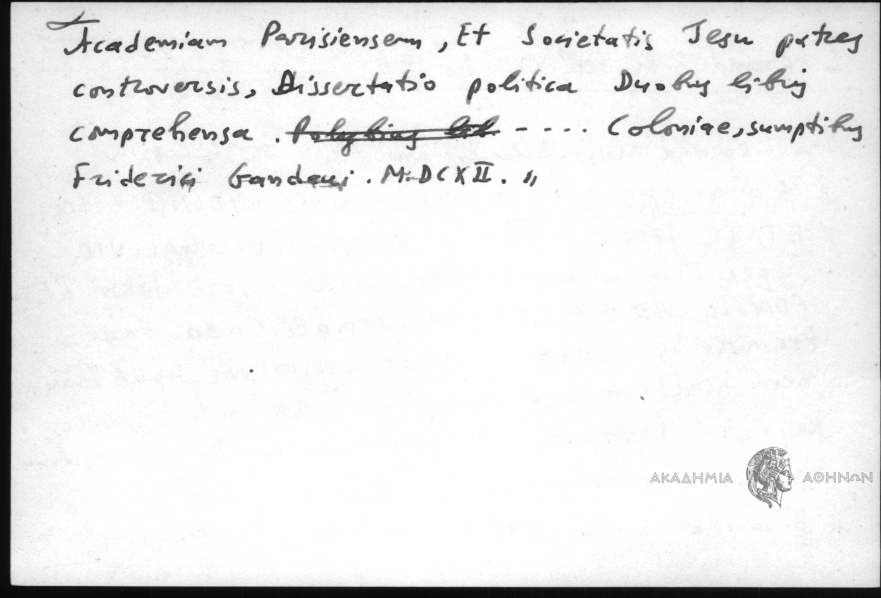 Academiam Parisiensem, Et Societatis Jesu patres
controversis, Dissertatio politica Duobus libris
comprehensa. Polybius lib. - .... Coloniae, sumptibus
Friderici Gandavi. M.DCXII. „
ΑΚΑΔΗΜΙΑ ΑΘΗΝΩΝ